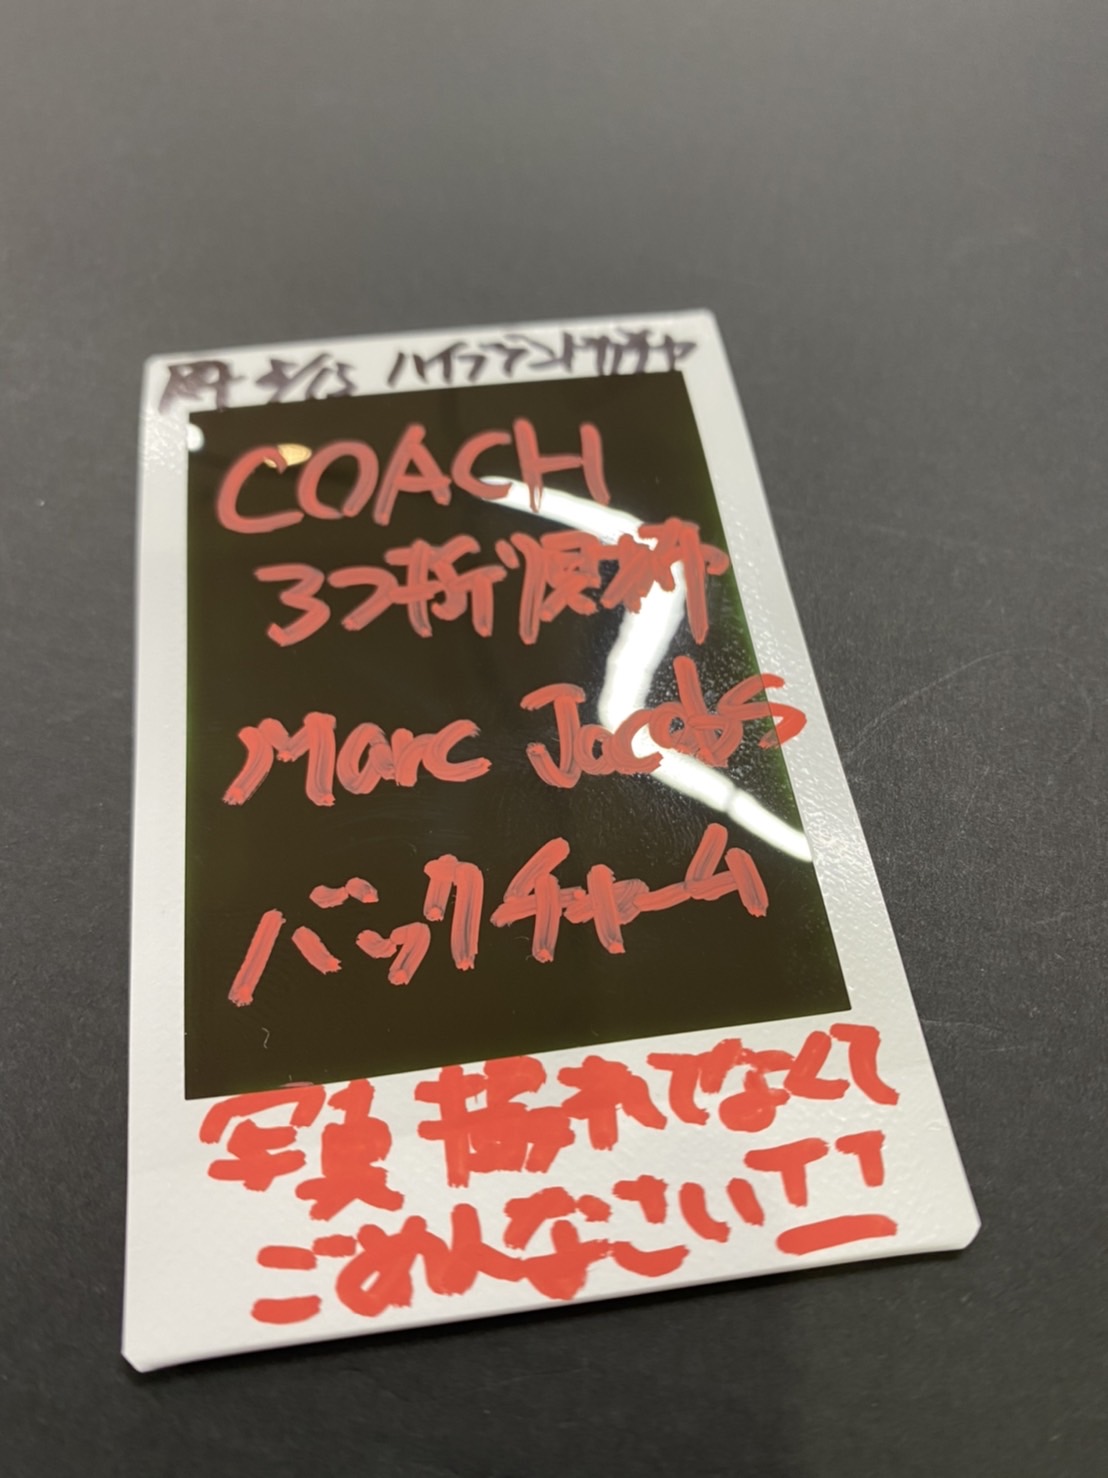 5/13 ハイブランドガチャ
COACH
3つ折り財布
Marc Jacobs
バックチャーム
写真撮れてなくて
ごめんなさいTT